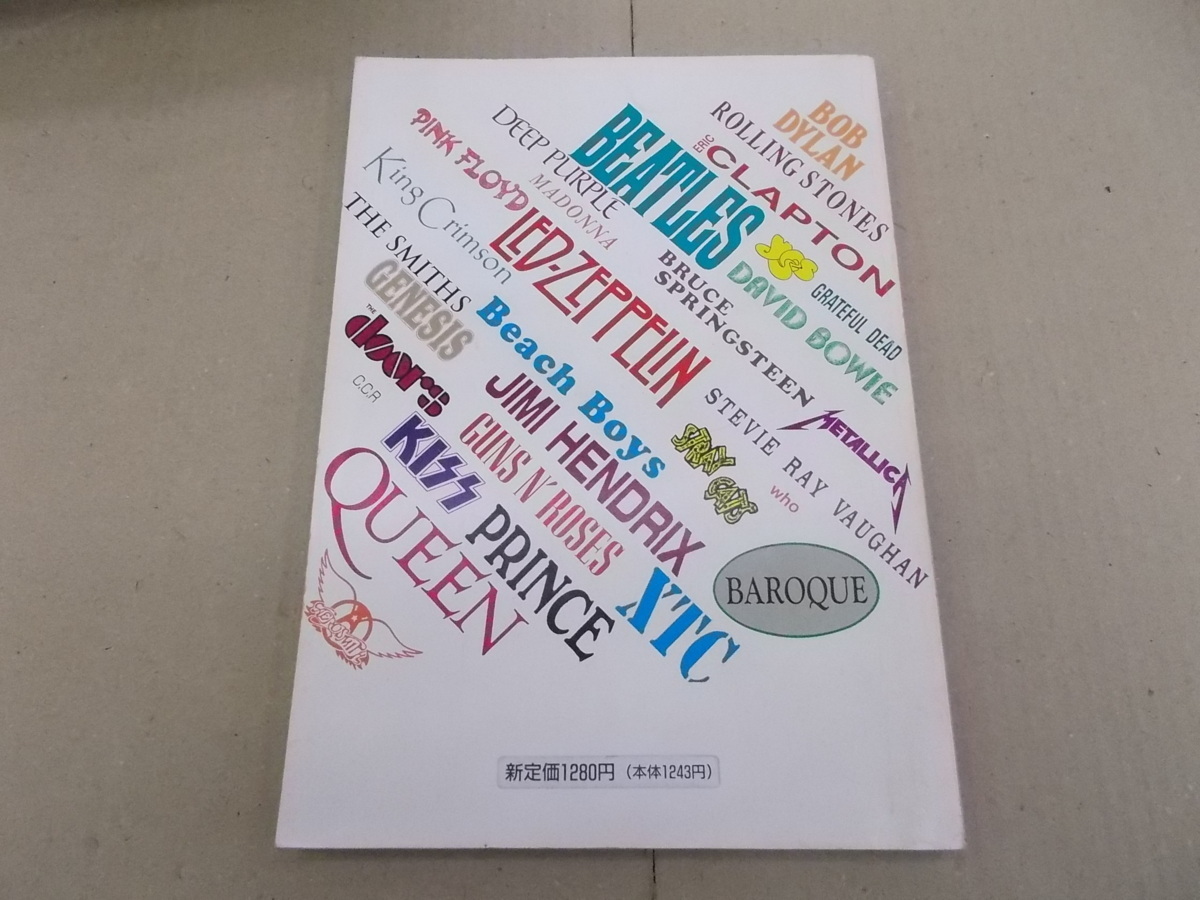 BOB
DYLAN
ROLLING STONES
ERIC
CLAPTON
BEATLES
DEEP PURPLE
MADONNA
PINK FLOYD
King Crimson
THE SMITHS
LED-ZEPPELIN
yes
GRATEFUL DEAD
DAVID BOWIE
BRUCE
SPRINGSTEEN
GENESIS
THE
doors
C.C.R
Beach Boys
STEVIE RAY VAUGHAN
METALLICA
JIMI HENDRIX
STRAY
CATS
who
KISS
GUNS N' ROSES
QUEEN
PRINCE
XTC
BAROQUE
AEROSMITH
新定価1280円(本体1243円)